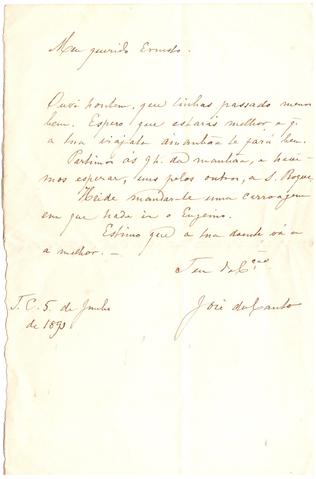 Meu querido Ernesto.
Ouvi hontem, que tinhas passado menos
bem. Espero que estarás melhor e q.
a tua viajata ámanhãa te fará bem.
Partimos ás 9h. da manhãa, e have-
mos esperar, uns pelos outros, a S. Roque.
Heide mandar-te uma carroagem
em que hade ir o Eugenio.
Estimo que a tua doente vá
a melhor. —
Teu do C.
José do Canto
J. C. 5 de Junho
de 1893